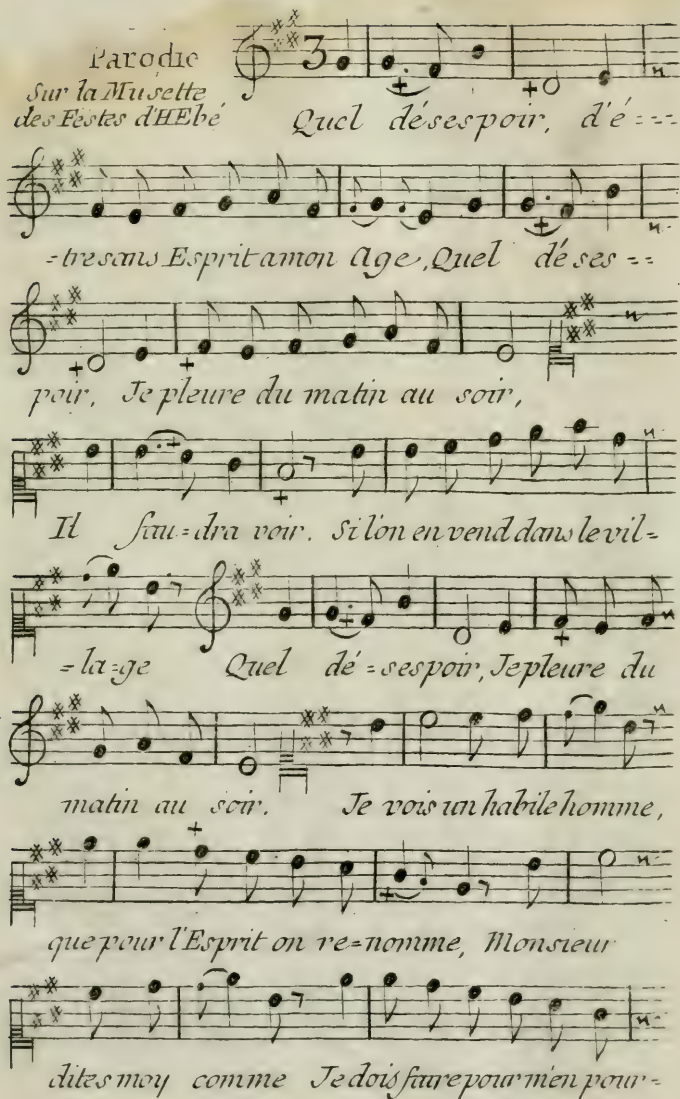 Parodie
Sur la Musette
des Festes d'HEbé
3
Quel désespoir, d'é---
-tre sans Esprit a mon Age, Quel déses--
poir, Je pleure du matin au soir,
Il fau-dra voir. Si l'on en vend dans le vil-
-la-ge Quel dé-sespoir, Je pleure du
matin au soir. Je vois un habile homme,
que pour l'Esprit on re-nomme, Monsieur
dites moy comme Je dois faire pour m'en pour-